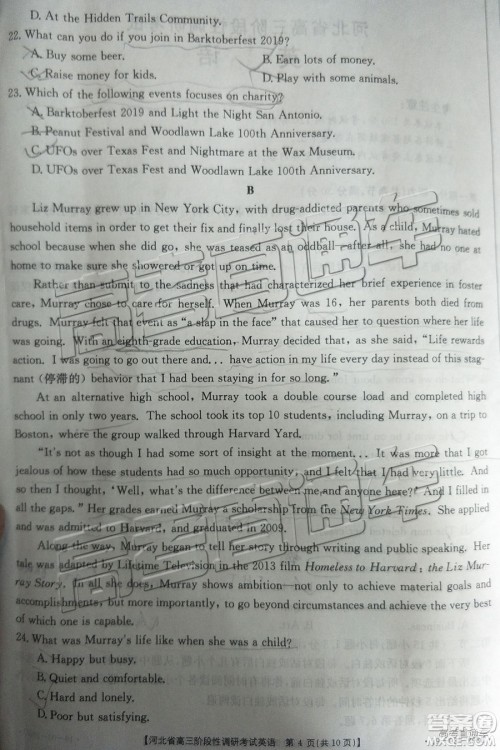 D. At the Hidden Trails Community.
22. What can you do if you join in Barktoberfest 2019?
A. Buy some beer. B. Earn lots of money.
C. Raise money for kids. D. Play with some animals.
23. Which of the following events focuses on charity?
A. Barktoberfest 2019 and Light the Night San Antonio.
B. Peanut Festival and Woodlawn Lake 100th Anniversary.
C. UFOs over Texas Fest and Nightmare at the Wax Museum.
D. UFOs over Texas Fest and Woodlawn Lake 100th Anniversary.
B
Liz Murray grew up in New York City, with drug-addicted parents who sometimes sold
household items in order to get their fix and finally lost their house. As a child, Murray hated
school because when she did go, she was teased as an oddball—after all, she had no one at
home to make sure she showered or got up on time.
Rather than submit to the sadness that had characterized her brief experience in foster
care, Murray chose to care for herself. When Murray was 16, her parents both died from
drugs. Murray felt that event as “a slap in the face” that caused her to question where her life
was going. With an eighth-grade education, Murray decided that, as she said, “Life rewards
action. I was going to go out there and... have action in my life every day instead of this stag-
nant (停滞的) behavior that I had been staying in for so long.”
At an alternative high school, Murray took a double course load and completed high
school in only two years. The school took its top 10 students, including Murray, on a trip to
Boston, where the group walked through Harvard Yard.
“It's not as though I had some sort of insight at the moment... It was more that I got
jealous of how these students had so much opportunity, and I felt that I had very little. And
so then I thought, ‘Well, what's the difference between me and anyone here?’ And I filled in
all the gaps.” Her grades earned Murray a scholarship from the New York Times. She applied
and was admitted to Harvard, and graduated in 2009.
Along the way, Murray began to tell her story through writing and public speaking. Her
tale was adapted by Lifetime Television in the 2013 film Homeless to Harvard: the Liz Mur-
ray Story. In all she does, Murray shows ambition—not only to achieve material goals and
accomplishments, but more importantly, to go beyond circumstances and achieve the very best
of which one is capable.
24. What was Murray's life like when she was a child?
A. Happy but busy.
B. Quiet and comfortable.
C. Hard and lonely.
D. Poor but satisfying.
【河北省高三阶段性调研考试英语 第 4 页(共 10 页)】